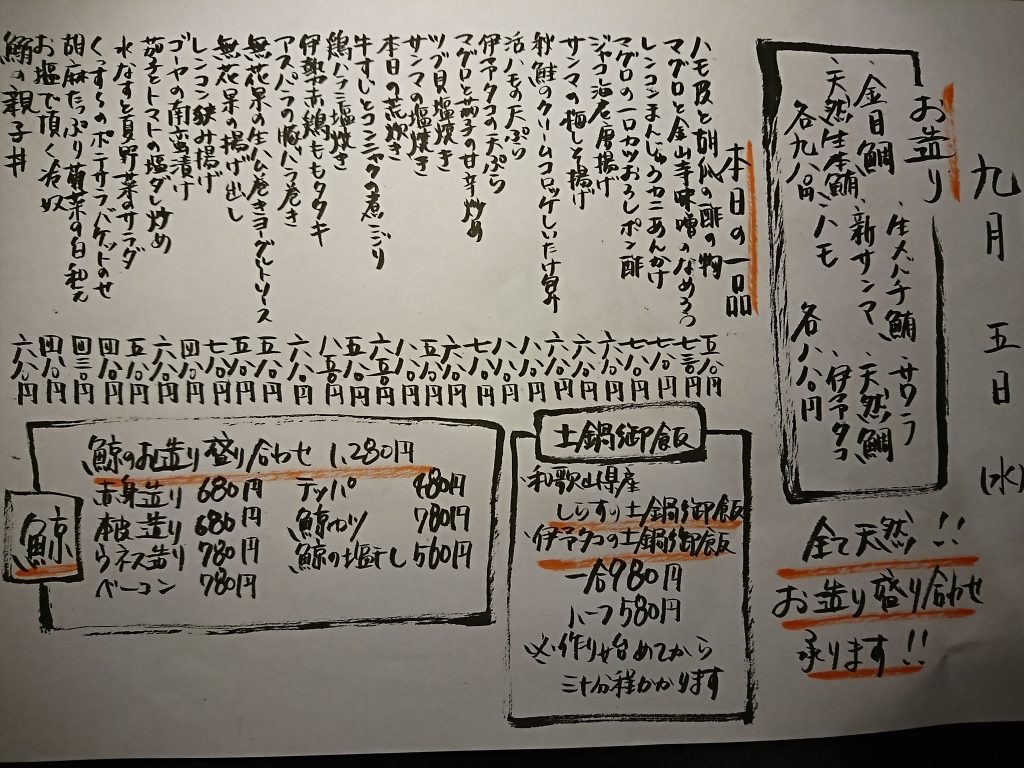 九月 五日 (水)
お造り
、生メバチ鮪 、サワラ
、金目鯛 、新サンマ 、天然鯛
、天然生本鮪 、ハモ 、伊予タコ
各九八〇円 各八八〇円
全て天然!!
お造り盛り合わせ
承ります!!
本日の一品
ハモ皮と胡瓜の酢の物 五八〇円
マグロと金山寺味噌のなめろう 七三〇円
レンコンまんじゅうカニあんかけ 七八〇円
マグロの一口カツおろしポン酢 七八〇円
ジャコ海老唐揚げ 六八〇円
サンマの梅しそ揚げ 六八〇円
秋鮭のクリームコロッケしいたけ包み
活ハモの天ぷら
伊予タコの天ぷら
マグロと茄子の甘辛炒め
ツブ貝塩焼き
サンマの塩焼き
本日の荒炊き
牛すじとコンニャクの煮こごり
鶏ハラミ塩焼き
伊勢赤鶏ももタタキ
アスパラの豚バラ巻き
無花果の生ハム巻きヨーグルトソース
無花果の揚げ出し
レンコン挟み揚げ
ゴーヤの南蛮漬け
茄子とトマトの塩ダレ炒め
水なすと夏野菜のサラダ
のポテサラバゲットのせ
胡麻たっぷり菊菜の白和え 四三〇円
お塩で頂く冷奴 四八〇円
鰯の親子丼 六八〇円
土鍋御飯
和歌山県産
しらすの土鍋御飯
伊予タコの土鍋御飯
一合980円
ハーフ580円
※作り始めてから
三十分程かかります
鯨
鯨のお造り盛り合わせ 1,280円
赤身造り 680円 テッパ 480円
本皮造り 680円 鯨カツ 780円
ウネス造り 780円 鯨の塩干し 560円
ベーコン 780円